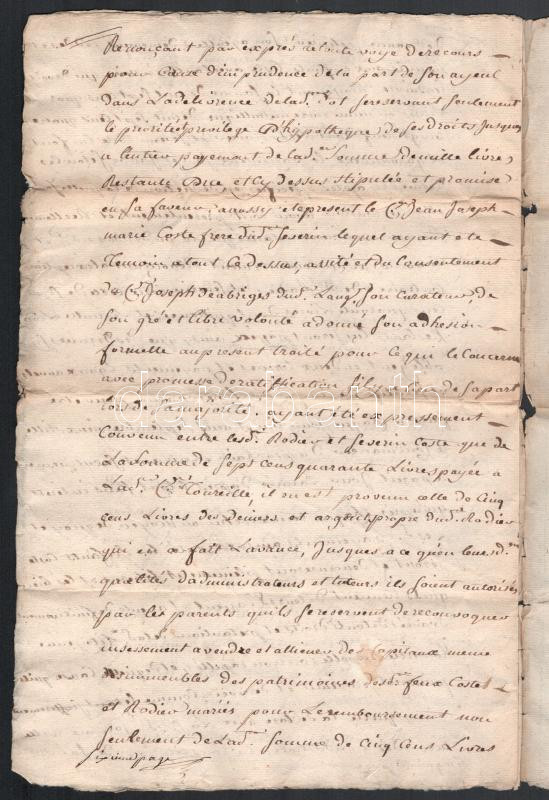 Renonçant par exprés a toute voye de recours
pour Cause d'imprudence de la part de son ayeul
dans La delivrence de lad. dot se reservans seulement
le priorité privilege & d'hypotheque, de ses droits Jusques
a l'entier payement de lad. Somme, de mille livres
Restante & Due et Cy dessus stipulée et promise
en sa faveur, aussy a été present le Sr. Jean Joseph
marie Coste frere dud. Severin lequel ayant été
temoin a tout Ce dessus, assité et du Consentement
de Sr. Joseph deabriges dud. Lang. son Curateur, de
son gré et libre volonté a donné son adhesion
formelle au present traité pour Ce qui le Concerne
avec promesse de ratiffication s'il y a lieu de sa part
lors de sa majorité, ayant été expressement
Convenu entre lesd. Rodier et Severin Coste que de
La somme de sept Cens quarante Livres payée a
Lad. Toureille, il en est provenu Celle de Cinq
Cens Livres des deniers et argent propre dud. Rodier
qui en a fait Lavance, Jusques a ce qu'en leursd.
qualités d'administrateurs et tuteurs ils soient autorisés
par les parents qu'ils se reservent de reconvoquer
insessement a vendre et alliener des Capitaux meme
immeubles des patrimoines desd. feux Coste
et Rodier mariés pour Le remboursement non
seulement de Lad. somme de Cinq Cens Livres
page
darabanth